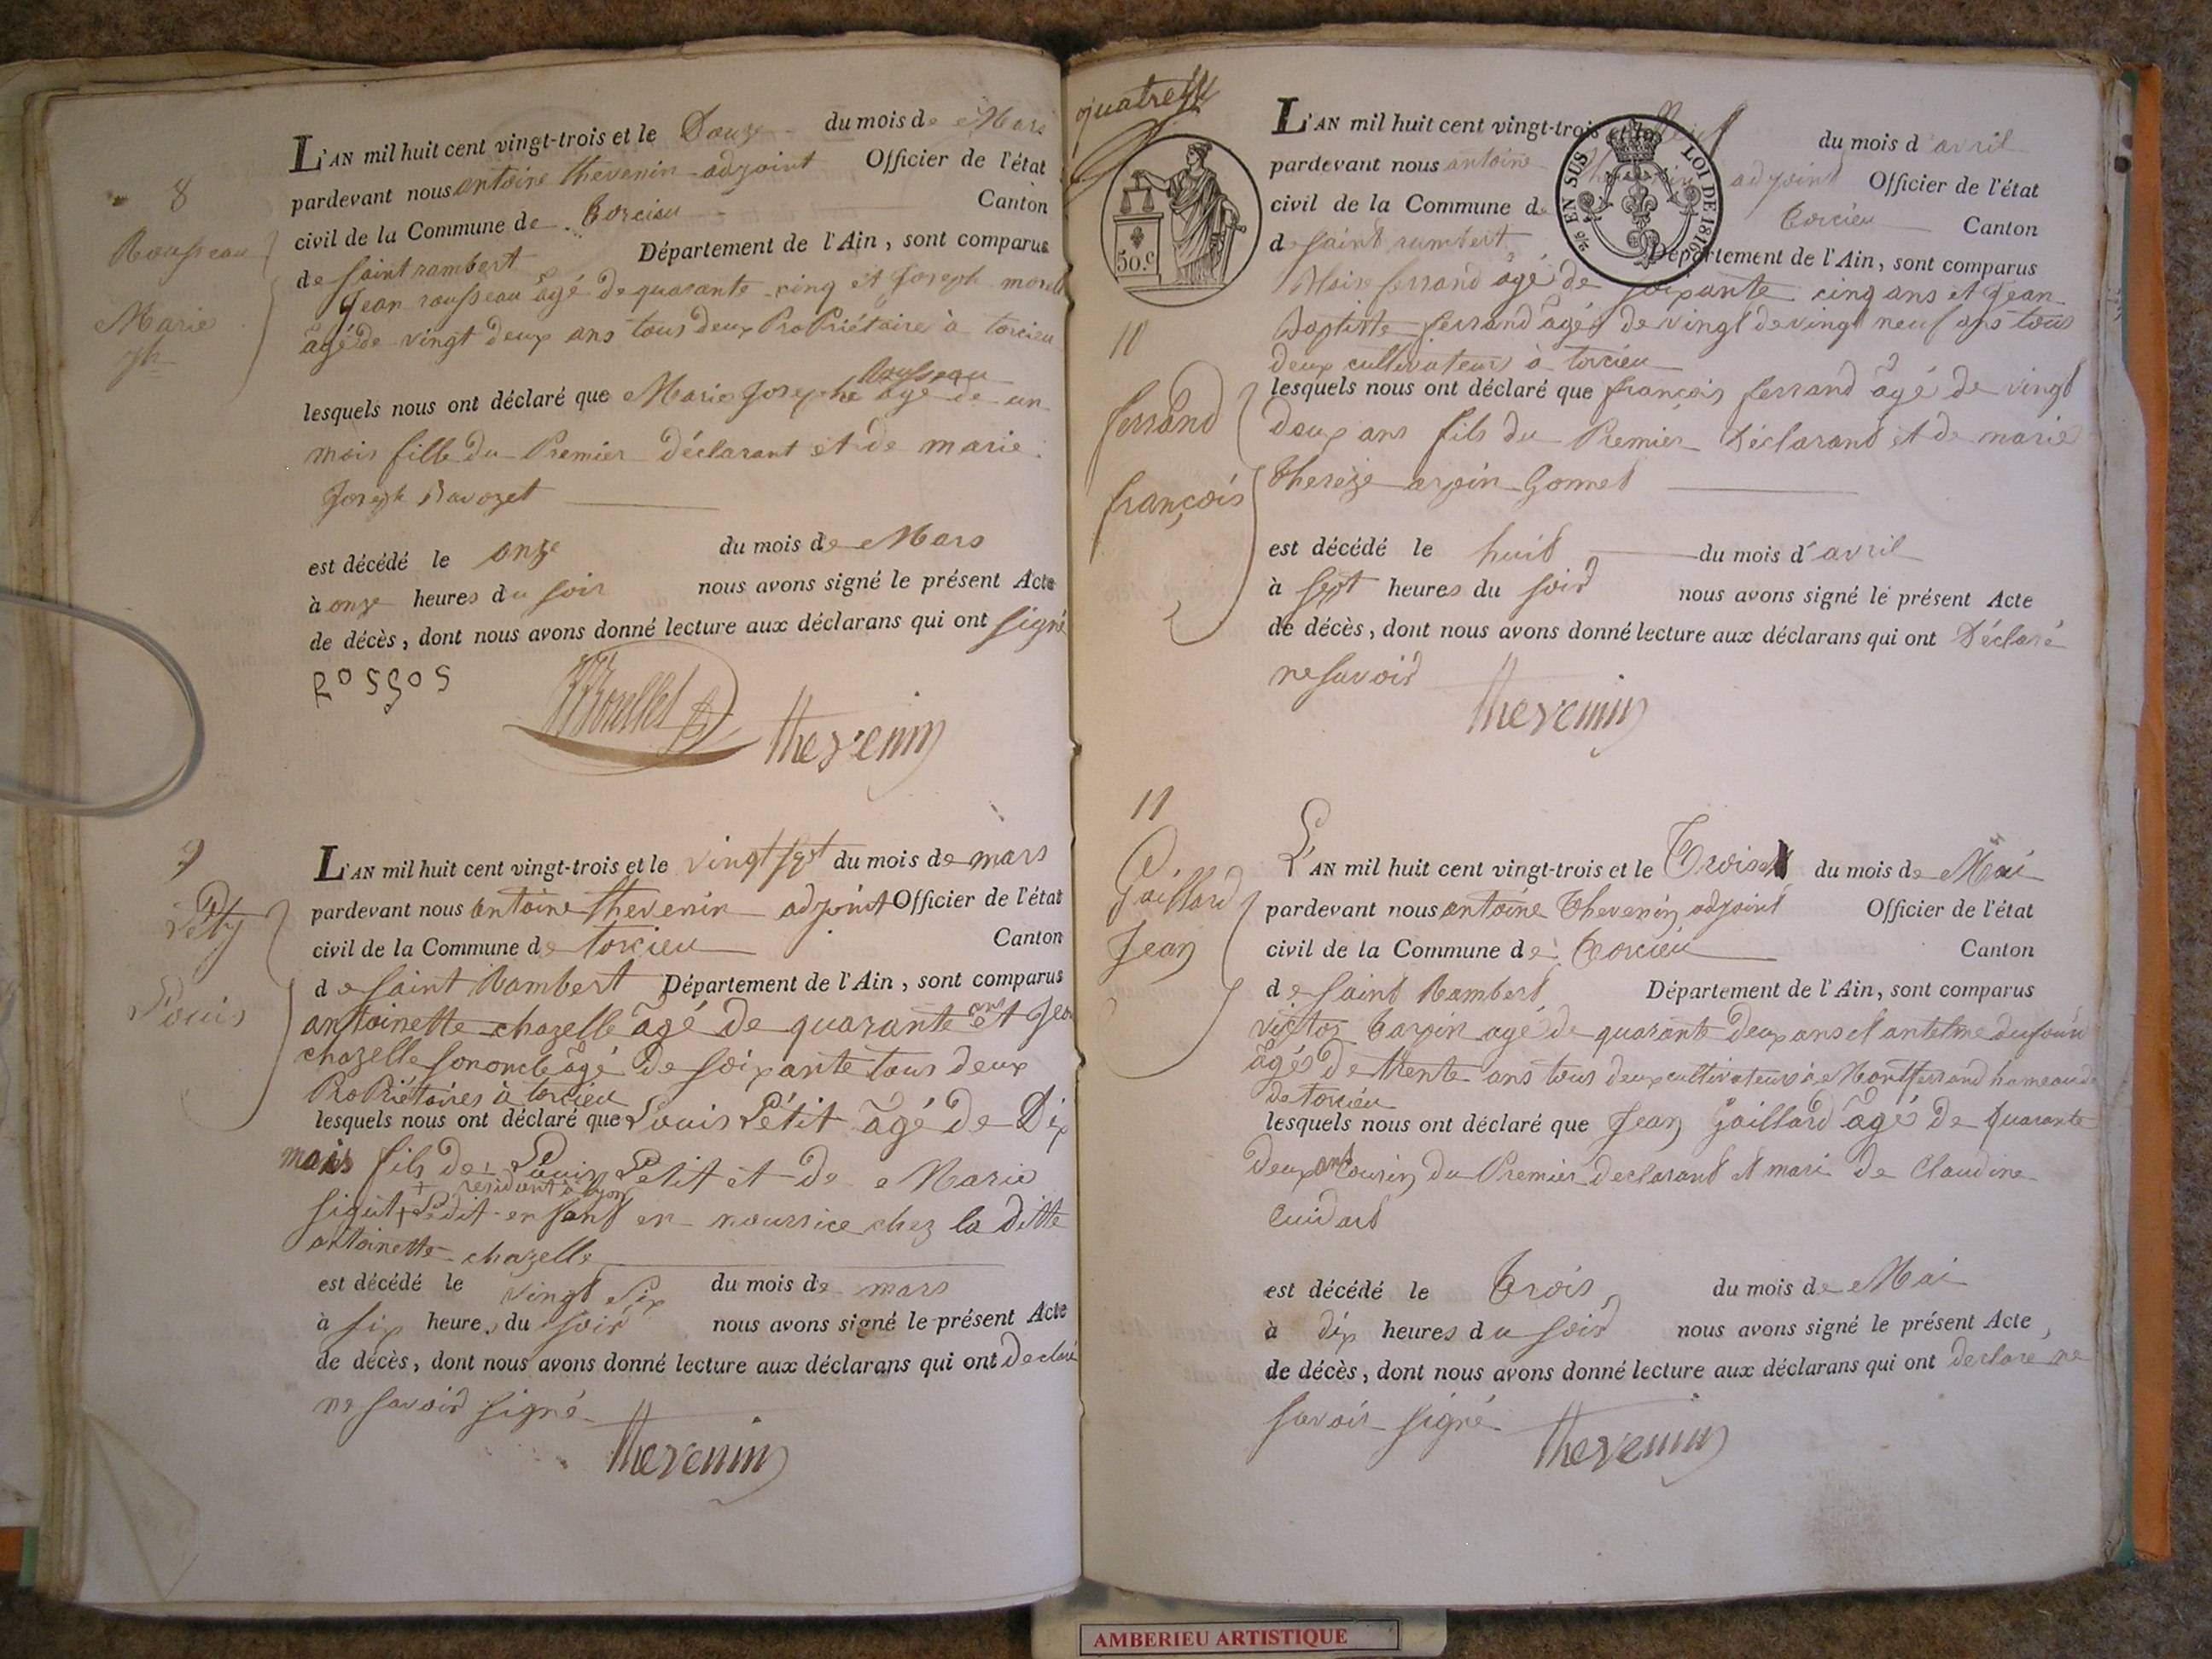 8
Rousseau
Marie
jh
L'AN mil huit cent vingt-trois et le Douze du mois de Mars
pardevant nous antoine thevenin adjoint Officier de l'état
civil de la Commune de Torcieu Canton
de saint rambert Département de l'Ain, sont comparus
jean rousseau âgé de quarante cinq et joseph
âgé de vingt deux ans tous deux ProPriétaire à torcieu
lesquels nous ont déclaré que Marie Josephe Rousseau âgé de un
mois fille du Premier déclarant et de marie
Joseph Ravozet
est décédé le onze du mois de Mars
à onze heures du soir nous avons signé le présent Acte
de décès, dont nous avons donné lecture aux déclarans qui ont signé
thevenin
9
Pety
Louis
L'AN mil huit cent vingt-trois et le vingt sept du mois de mars
pardevant nous antoine thevenin adjoint Officier de l'état
civil de la Commune de torcieu Canton
de saint Rambert Département de l'Ain, sont comparus
antoinette chazelle âgé de quarante ans et
chazelle son oncle âgé de soixante tous deux
ProPriétaires à torcieu
lesquels nous ont déclaré que Louis Pétit âgé de Dix
mois fils de Louis Petit et de Marie
résidant à lyon
+ Ledit enfant en nourrice chez la ditte
antoinette chazelle
est décédé le vingt six du mois de mars
à six heures du soir nous avons signé le présent Acte
de décès, dont nous avons donné lecture aux déclarans qui ont declaré
ne savoir signé
thevenin
quatre
50.C
EN SUS LOI DE 1816
10
ferrand
françois
L'AN mil huit cent vingt-trois et le Neuf du mois d'avril
pardevant nous antoine thevenin adjoint Officier de l'état
civil de la Commune de Torcieu Canton
de saint rambert Département de l'Ain, sont comparus
ferrand âgé de soixante cinq ans et jean
Baptiste ferrand âgé de vingt de vingt neuf ans tous
deux cultivateurs à torcieu
lesquels nous ont déclaré que françois ferrand âgé de vingt
deux ans fils du Premier Déclarant et de marie
Therèze arpin Gonnet
est décédé le huit du mois d'avril
à sept heures du soir nous avons signé le présent Acte
de décès, dont nous avons donné lecture aux déclarans qui ont Déclaré
ne savoir
thevenin
11
Gaillard
Jean
L'AN mil huit cent vingt-trois et le Trois du mois de Mai
pardevant nous antoine Thevenin adjoint Officier de l'état
civil de la Commune de Torcieu Canton
de saint Rambert Département de l'Ain, sont comparus
victor Tarpin agé de quarante deux ans et antelme dufour
âgés de trente ans tous deux cultivateurs à Montferrand hameau de
de torcieu
lesquels nous ont déclaré que Jean Gaillard âgé de quarante
deux ans cousin du Premier declarant et mari de Claudine
est décédé le Trois du mois de Mai
à dix heures du soir nous avons signé le présent Acte
de décès, dont nous avons donné lecture aux déclarans qui ont declaré ne
savoir signé
thevenin
AMBERIEU ARTISTIQUE